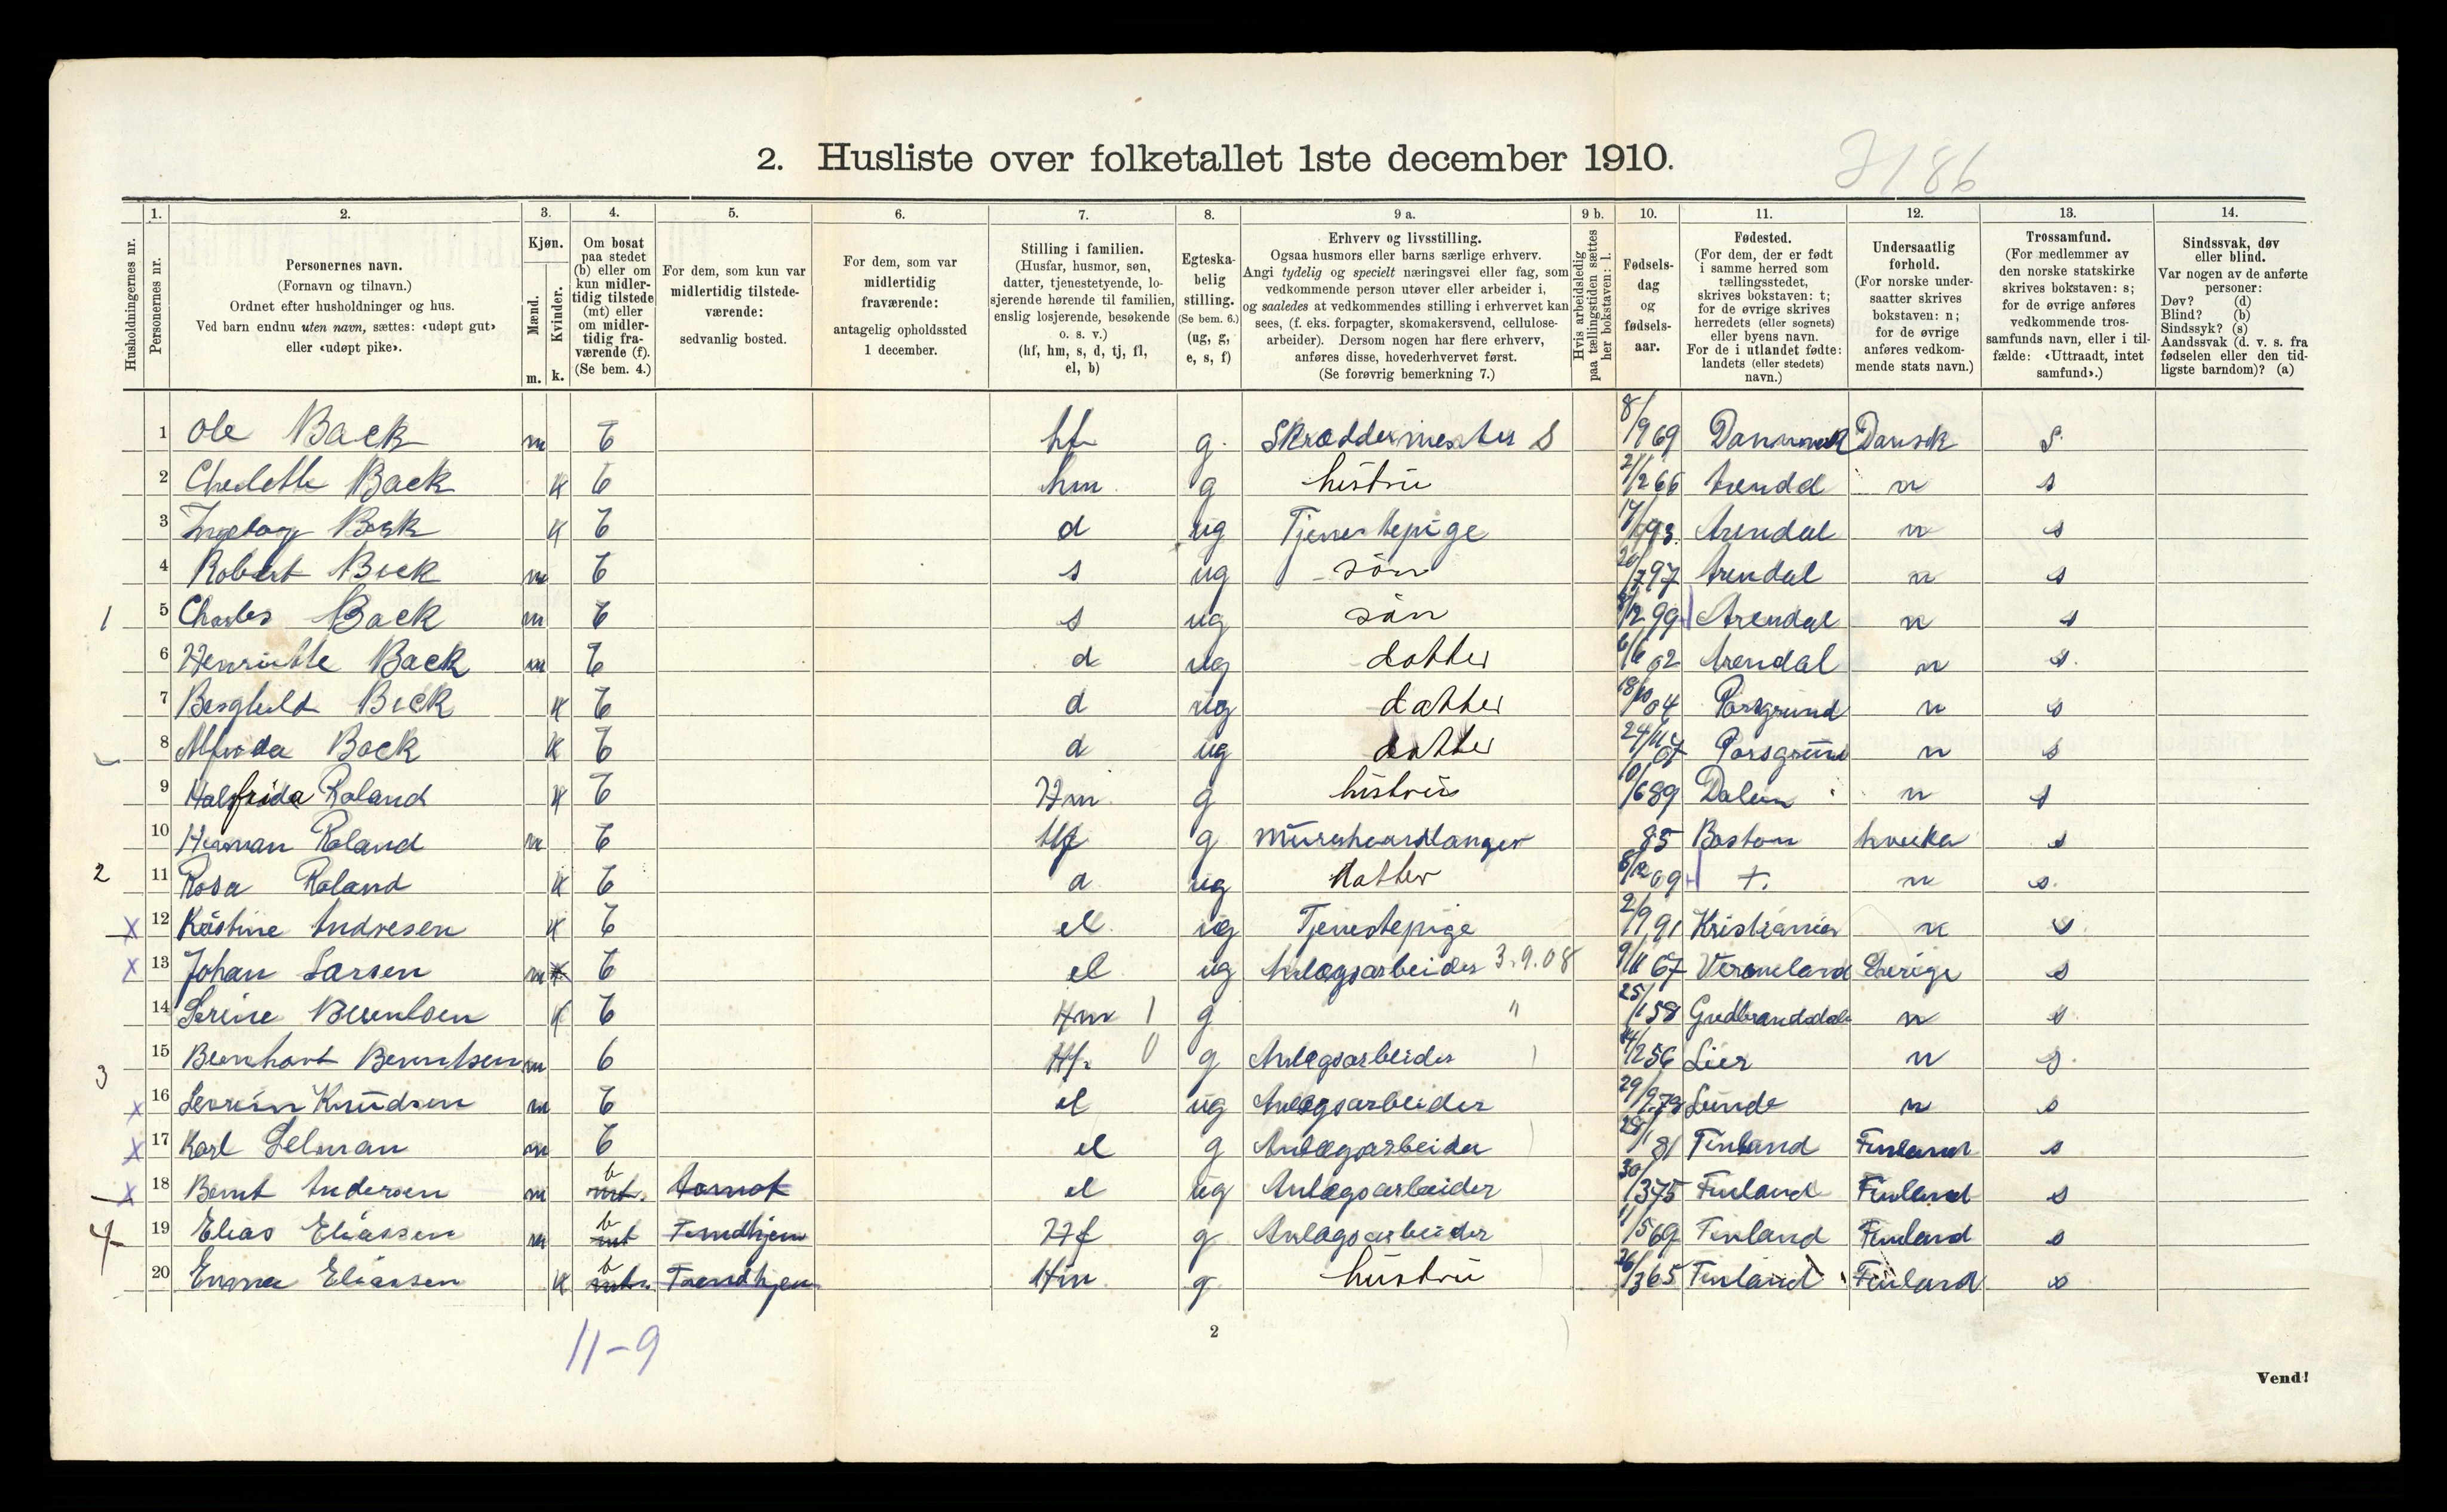 2. Husliste over folketallet 1ste december 1910.
7186
Husholdningernes nr.
1. Personernes nr.
2. Personernes navn. (Fornavn og tilnavn.) Ordnet efter husholdninger og hus. Ved barn endnu uten navn, sættes: «udøpt gut» eller «udøpt pike».
3. Kjøn. Mænd. m. Kvinder. k.
4. Om bosat paa stedet (b) eller om kun midlertidig tilstede (mt) eller om midlertidig fraværende (f). (Se bem. 4.)
5. For dem, som kun var midlertidig tilstedeværende: sedvanlig bosted.
6. For dem, som var midlertidig fraværende: antagelig opholdssted 1 december.
7. Stilling i familien. (Husfar, husmor, søn, datter, tjenestetyende, losjerende hørende til familien, enslig losjerende, besøkende o. s. v.) (hf, hm, s, d, tj, fl, el, b)
8. Egteskabelig stilling. (Se bem. 6.) (ug, g, e, s, f)
9 a. Erhverv og livsstilling. Ogsaa husmors eller barns særlige erhverv. Angi tydelig og specielt næringsvei eller fag, som vedkommende person utøver eller arbeider i, og saaledes at vedkommendes stilling i erhvervet kan sees, (f. eks. forpagter, skomakersvend, cellulosearbeider). Dersom nogen har flere erhverv, anføres disse, hovederhvervet først. (Se forøvrig bemerkning 7.)
9 b. Hvis arbeidsledig paa tællingstiden sættes her bokstaven: l.
10. Fødselsdag og fødselsaar.
11. Fødested. (For dem, der er født i samme herred som tællingsstedet, skrives bokstaven: t; for de øvrige skrives herredets (eller sognets) eller byens navn. For de i utlandet fødte: landets (eller stedets) navn.)
12. Undersaatlig forhold. (For norske undersaatter skrives bokstaven: n; for de øvrige anføres vedkommende stats navn.)
13. Trossamfund. (For medlemmer av den norske statskirke skrives bokstaven: s; for de øvrige anføres vedkommende trossamfunds navn, eller i tilfælde: «Uttraadt, intet samfund».)
14. Sindssvak, døv eller blind. Var nogen av de anførte personer: Døv? (d) Blind? (b) Sindssyk? (s) Aandssvak (d. v. s. fra fødselen eller den tidligste barndom)? (a)
1 Ole Back m b hf g. Skræddermester S 8/9 69 Danmark Dansk s
2 Back k b hm g hustru 21/2 66 Arendal n s
3 Ingeborg Back k b d ug Tjenestepige 93 Arendal n s
4 Robert Back m b s ug søn 20/7 97 Arendal n s
1 5 Charles Back m b s ug søn 12 99 Arendal n s
6 Henriette Back m b d ug datter 6/6 02 Arendal n s.
7 Borghild Back k b d ug datter 18/10 04 Porsgrund n s
8 Alfrida Back k b d ug datter 24/11 07 Porsgrund n s
9 Halfrida Roland k b Hm g hustru 10/6 89 Dalen n s
10 Herman Roland m b Hf g Murerhaandlanger 85 Boston s
2 11 Rosa Roland k b d ug datter 8/12 09 t. n s.
x 12 Kristine Andresen k b el ug Tjenestepige 2/9 91 Kristiania n s
x 13 Johan Larsen m b el ug Anlægsarbeider 3.9.08 9/11 67 Vermeland Sverige s
14 Serine Berntsen k b Hm 1 g " 25/1 58 Gudbrandsdalen n s
3 15 Bernhart Berntsen m b Hf. 0 g Anlægsarbeider 14/2 56 Lier n s.
x 16 Knudsen m b el ug Anlægsarbeider 29/9 78 Lunde n s
x 17 Karl Selman m b el g Anlægsarbeider 28/1 81 Finland Finland s
x 18 Bernt Andersen m b mt. el ug Anlægsarbeider 30/3 75 Finland Finland s
4 19 Elias Eliassen m b mt Trondhjem Hf g Anlægsarbeider 11/5 69 Finland Finland s
20 Emma Eliassen k b mt. Trondhjem Hm g hustru 26/3 65 Finland Finland s
11-9
2
Vend!